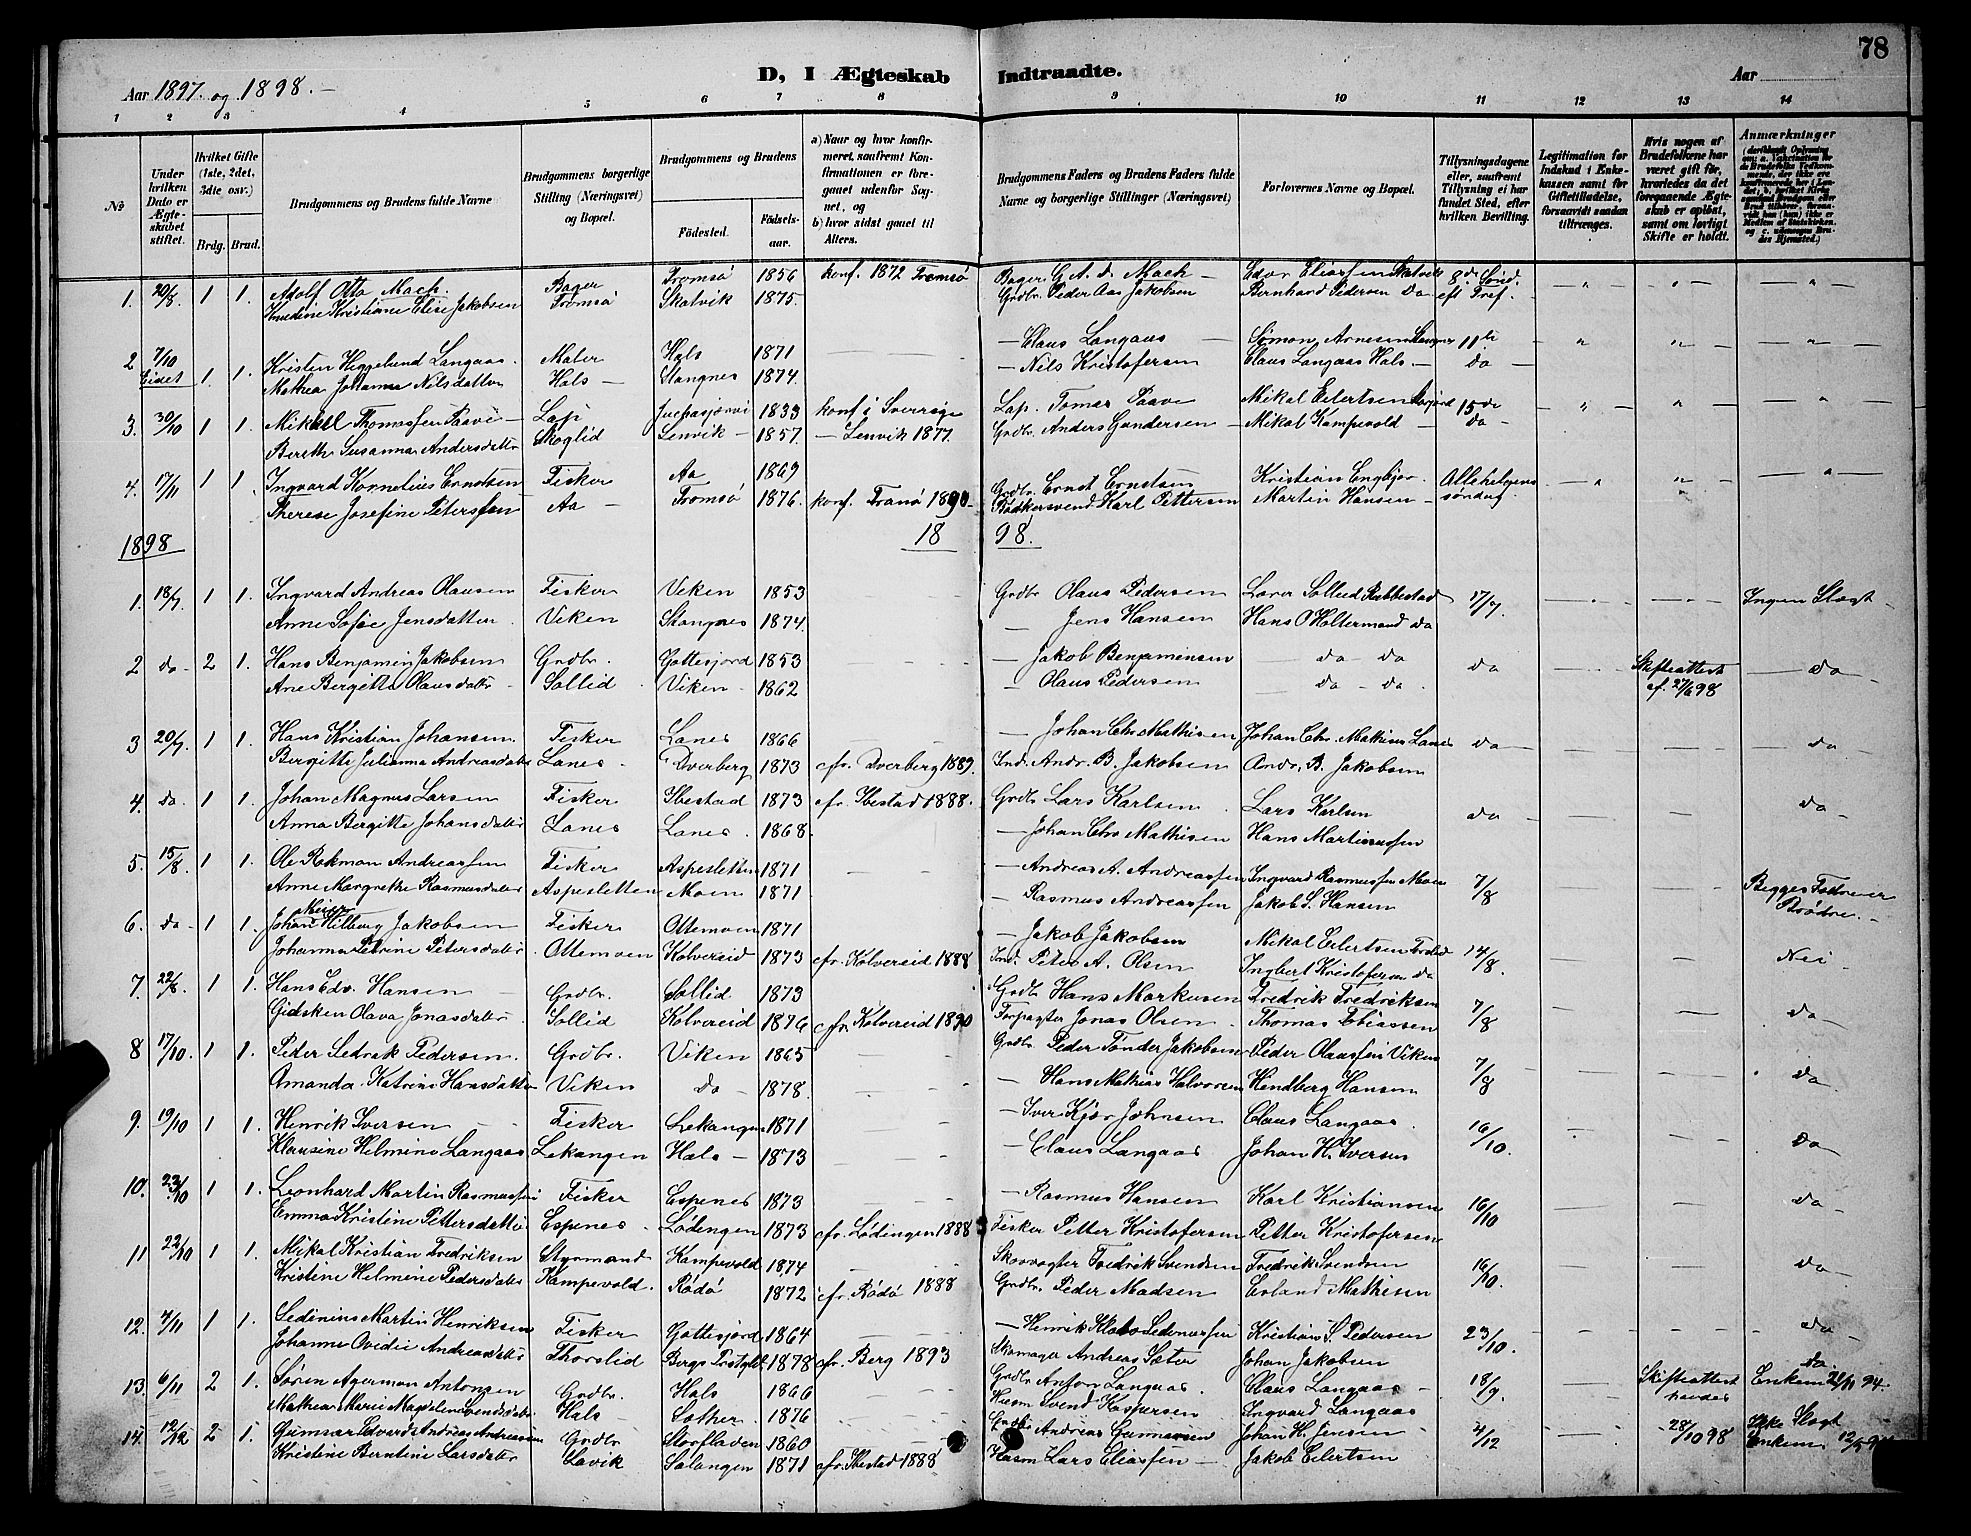 78
D, I Ægteskab Indtraadte.
Aar 1897. og 1898. —
Aar
1 2 3 4 5 6 7 8 9 10 11 12 13 14
No
Under hvilken Dato er Ægteskabet stiftet.
Hvilket Gifte (1ste, 2det, 3dte osv.)
Brdg. Brud.
Brudgommens og Brudens fulde Navne
Brudgommens borgerlige Stilling (Næringsvei) og Bopæl.
Brudgommens og Brudens
Fødested. Fødselsaar.
a) Naar og hvor konfirmeret, saafremt Konfirmationen er foregaaet udenfor Sognet, og
b) hvor sidst gaaet til Alters.
Brudgommens Faders og Brudens Faders fulde Navne og borgerlige Stillinger (Næringsvei)
Forlovernes Navne og Bopæl.
Tillysningsdagene eller, saafremt Tillysning ei har fundet Sted, efter hvilken Bevilling.
Legitimation for Indskud i Enkekassen samt for Giftetilladelse, forsaavidt saadan tiltrænges.
Hvis nogen af Brudefolkene har været gift før, hvorledes da det foregaaende Ægteskab er opløst, samt om lovligt Skifte er holdt.
Anmærkninger
1. 20/8 1 1. Adolf Otto Mach. Bager Tromsø 1856 konf. 1872 Tromsø Bager C. A. d. Mach — Edor Eliassen Skatvik 8de Sønd.
Knudine Kristiane Elise Jakobsen Tromsø Skatvik 1875. Grdbr. Peder Aas Jakobsen Bernhard Pedersen do eft Tref.
2 7/10 Eidet 1 1. Kristen Heggelund Langaas. Maler Hals 1871 — Claus Langaas — Simon Arnesen Stangnes 11te
Mathea Johanna Nilsdatter Hals — Stangnes 1874. — Nils Kristofersen Claus Langaas Hals. — do —
3. 30/10 1 1 Mikkel Thomassen Paavi — Lap Jucksasjærvi 1833 konf i Sverrige Lap. Tomas Paave Mikal Eilertsen 15de
Bereth Susanna Andersdatter Skoglid Lenvik — 1857. — Lenvik 1877. Grdbr. Anders Gundersen — Mikal Kampevold — do —
4. 17/11 1 1 Ingvard Kornelius Erntsen Fisker Aa 1869 Grdbr. Ernst Ernstsen Kristian Engkjer. Allehelgens
Therese Josefine Peterssen Aa — Tromsø 1876. konf. Tranø 1890. Bødkersvend Karl Pettersen Martin Hansen — søndag.
1898 18 98.
1. 18/7. 1 1. Ingvard Andreas Olausen Fisker Viken 1853 Grdbr Olaus Pedersen Lorer Sollid Rubbestad 17/7. Ingen Slægt
Anne Sofie Jensdatter. Viken Stangnes 1874. — Jens Hansen Hans O Holtermand do
2 do — 2 1. Hans Benjamin Jakobsen Grdbr. Gottesjord 1853 — Jakob Benjaminsen — do — do do Skifteattest — do
Ane Bergitte Olausdatter — Sollid Viken — 1862 — Olaus Pedersen — do — do. ef. 27/6 98
3 20/7. 1 1. Hans Kristian Johansen. Fisker Lanes 1866 — Johan Chr. Mathisen Johan Chr. Mathisen Lanes do — do
Bergitte Julianna Andreasdatter Lanes — Dverberg 1873 cfr. Dverberg 1889. Ind. Andr. B. Jakobsen Andr. B. Jakobsen
4. do. 1 1. Johan Magnus Larsen Fisker Ibestad 1873 cfr. Ibestad 1888. Grdbr Lars Karlsen Lars Karlsen do — do
Anna Bergitte Johansdatter Lanes Lanes. 1868. — Johan Chr Mathisen Hans Martinussen
5. 15/8. 1 1. Ole Rokman Andreassen Fisker Aspesletten 1871 — Andreas A. Andreassen Ingvard Rasmussen Moen 7/8 Begges Fædre er
Anne Margrethe Rasmusdatter Aspesletten Moen 1871 — Rasmus Andreassen Jakob S. Hansen Brødre. —
6. do — 1 1. Johan Meier Hilberg Jakobsen Fisker Ottemoen 1871 — Jakob Jakobsen Mikal Eilertsen 14/8. Nei
Johanna Petrine Petersdatter. Ottemoen Kolvereid 1873 cfr. Kolvereid 1888 Ind. Peter A. Olsen Ingbert Kristofersen do
7. 22/8 1 1. Hans Edv. Hansen — Grdbr. Sollid 1873 Grdbr Hans Markusen Fredrik Fredriksen 7/8 do
Gidsken Olava Jonasdatter. Sollid Kolvereid 1876 cfr. Kolvereid 1890 Forpagter Jonas Olsen — Thomas Tobiassen
8 17/10. 1 1. Peder Sedrik Pedersen. Grdbr. Viken 1865 Grdbr. Peder Tønder Jakobsen Peder Olaussen Viken 7/8 do
Amanda Katrine Hansdatter Viken do 1878. — Hans Mathias Halvorsen Hindberg Hansen
9. 19/10 1 1. Henrik Iversen — Fisker Lekangen 1871 — Iver Kjær Johnsen Claus Langaas. 16/10. do
Klausine Helmine Langaas Lekangen Hals — 1873 — Claus Langaas Johan H. Iversen
10. 23/10 1 1. Leonhard Martin Rasmussen Fisker Espenes 1873 — Rasmus Hansen Karl Kristiansen 16/10 do
Emma Kristine Pettersdatter Espenes. Lødengen 1873 cfr. Lødengen 1888 Fisker Petter Kristofersen Petter Kristofersen
11 22/10 1 1. Mikal Kristian Fredriksen Styrmand Kampevold 1874 Skovvogter Fredrik Svendsen Fredrik Svendsen 16/10. do
Kristine Helmine Pedersdatter Kampevold. Rødø 1872 cfr. Rødø 1888 Grdbr. Peder Madsen Erland Mathisen
12. 4/11 1 1. Sedenius Martin Henriksen Fisker Gottesjord 1864 — Henrik Klabo Sedenussen Kristian S. Pedersen 23/10. do
Johanne Ovidie Andreasdatter Thorslid Bergs Prstgjld 1878 cfr. Berg 1893 Skomager Andreas Sæter Johan Jakobsen
13. 6/11 2 1. Søren Agerman Antonsen Grdbr. Hals 1866 Grdbr Anton Langaas. Claus Langaas — 18/9. Skifteattest do
Mathea Marie Magdelene Svendsdatter Hals — Sother 1876 Husm Svend Kaspersen Ingvard Langaas havdes Enkem 21/11 94.
14. 12/12 2 1. Gunnar Edvard Andreas Andreassen Grdbr Storfladen 1860 Grdbr Andreas Gunnarsen Johan H. Jensen 4/12 28/10 98 Ikke Slægt
Kristine Berntine Larsdatter Lavik Salangen 1871 cfr. Ibestad 1888 Husm Lars Eliassen — Jakob Eilertsen Enkem 12/